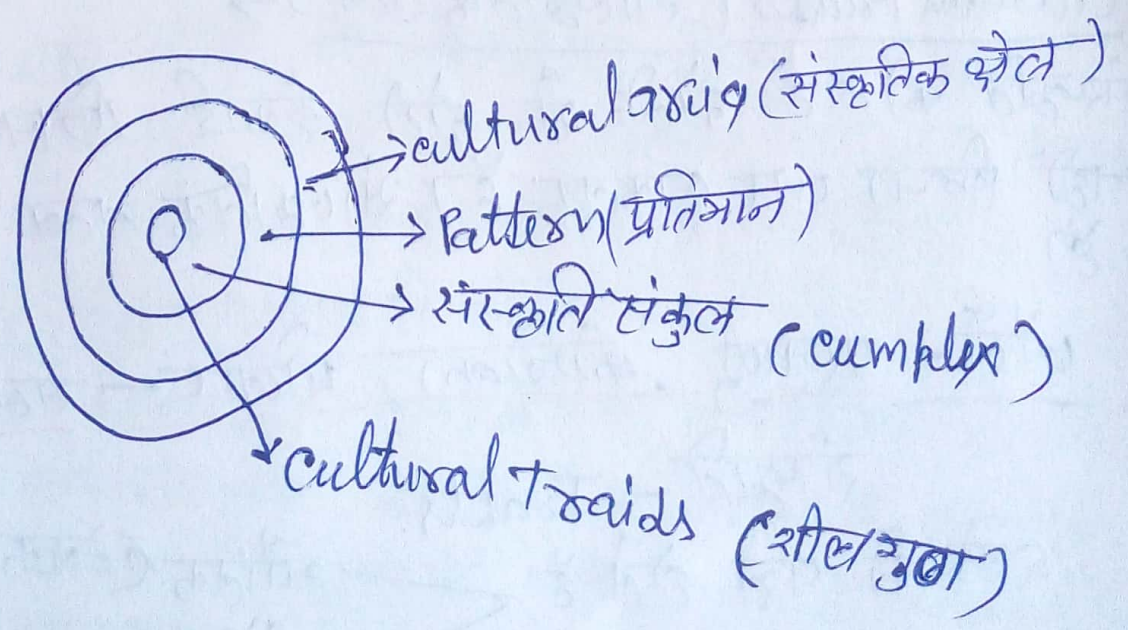 cultural aria (संस्कृतिक क्षेत्र)
Pattern (प्रतिमान)
संस्कृति संकुल
(cumplex)
Cultural Traids (शील गुण)